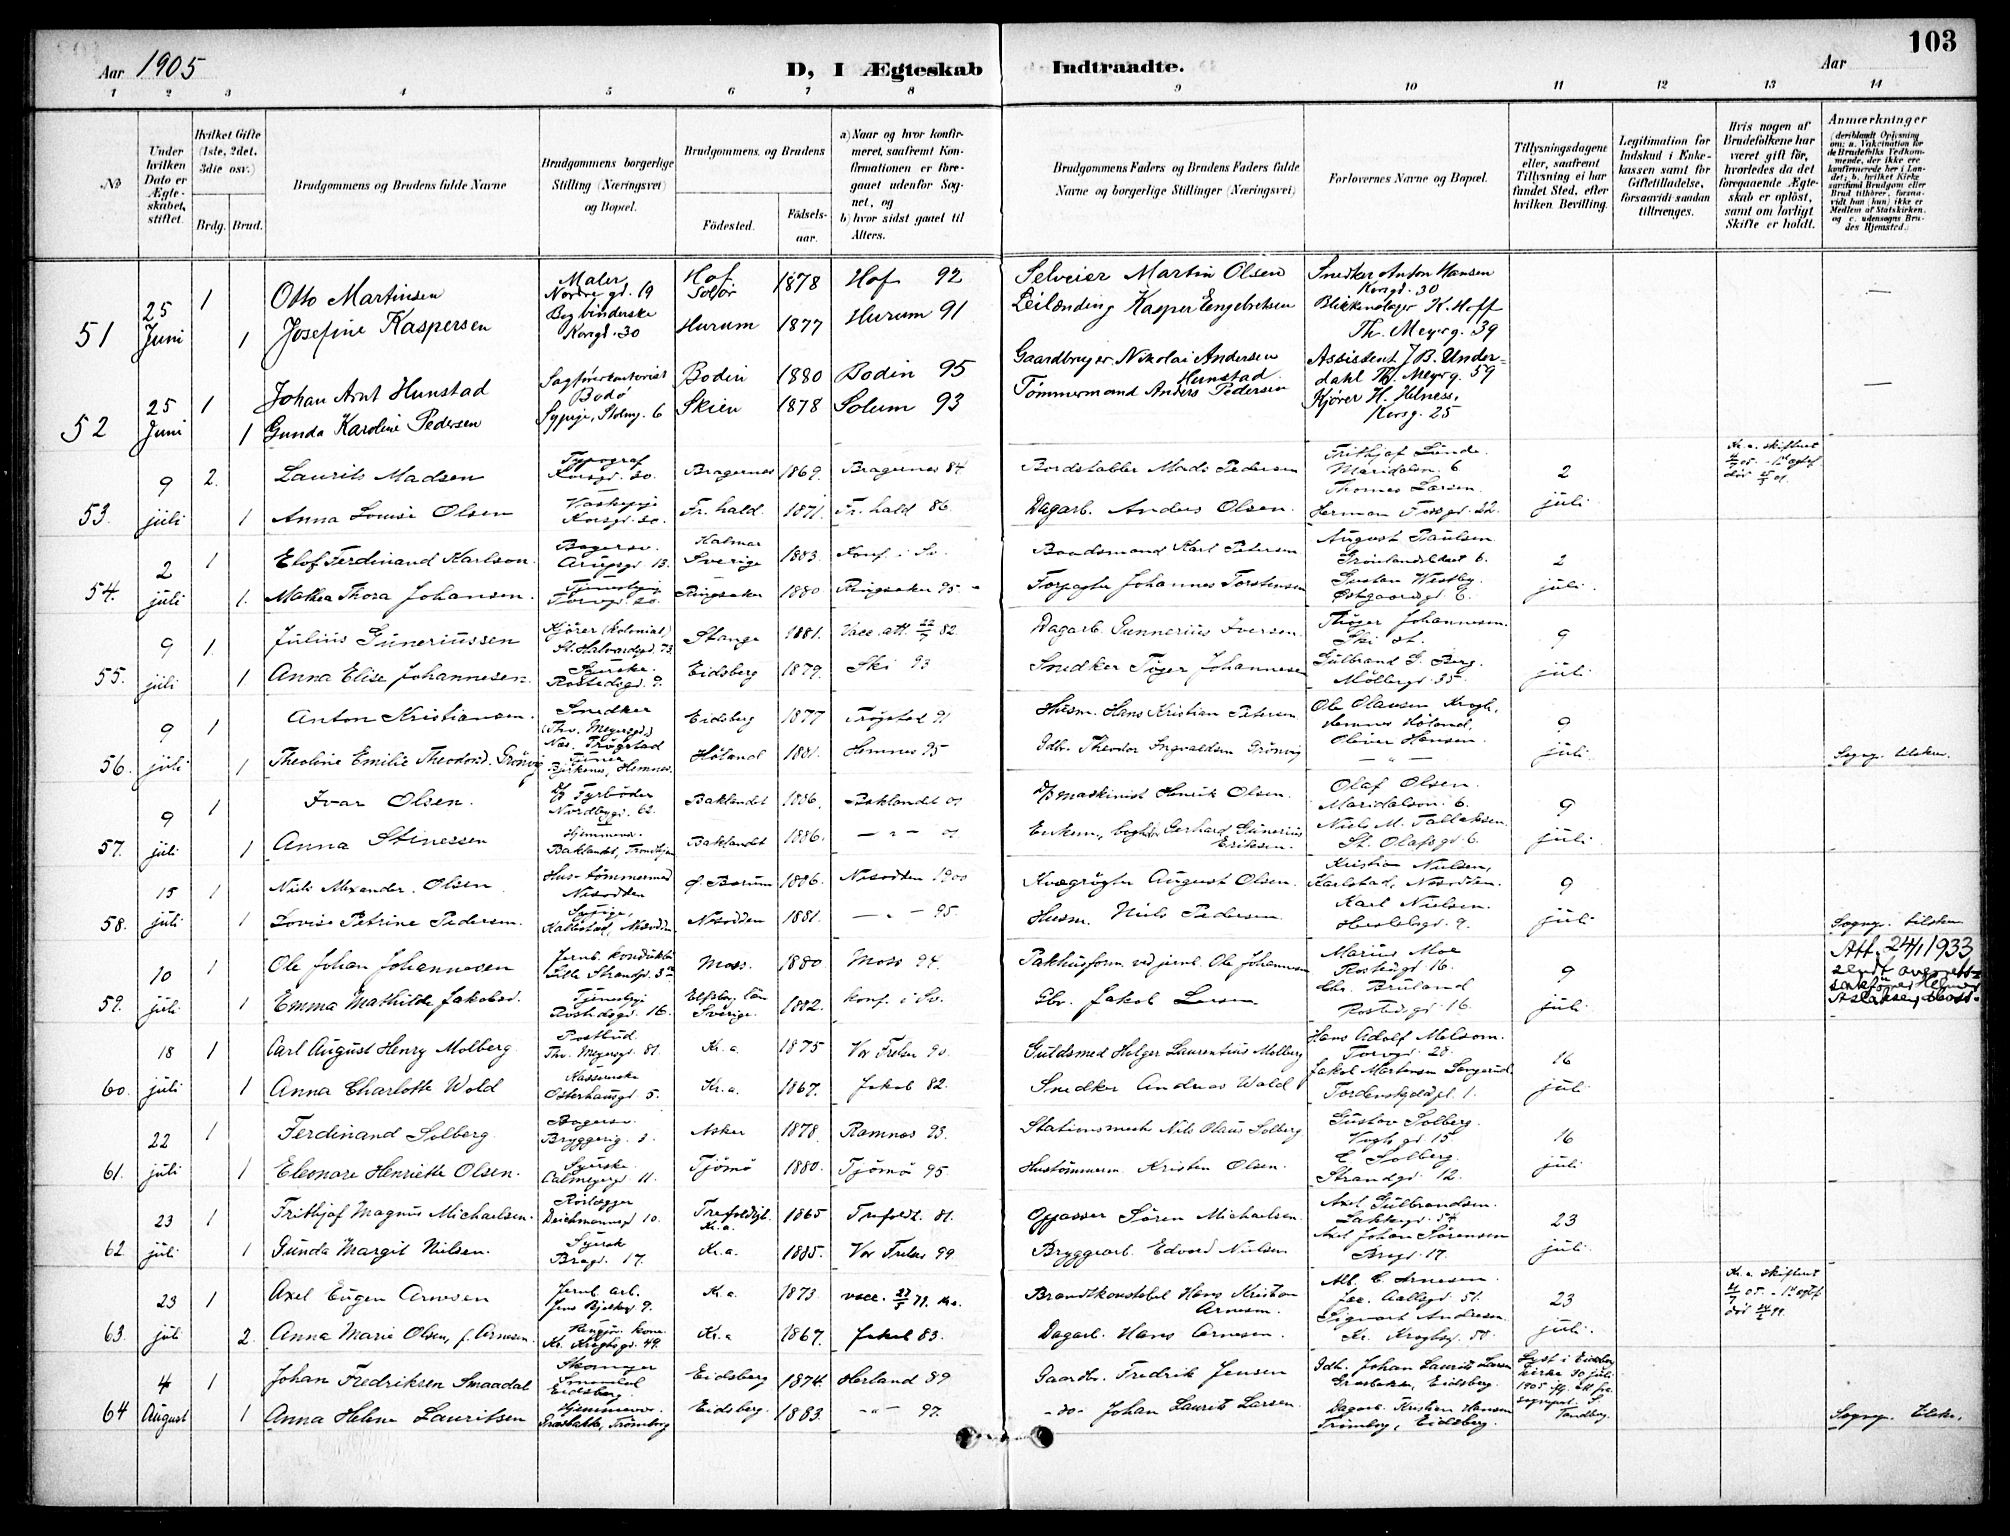 103
Aar 1905
D, I Ægteskab Indtraadte.
Aar
1 2 3 4 5 6 7 8 9 10 11 12 13 14
No
Under hvilken Dato er Ægteskabet, stiftet.
Hvilket Gifte (1ste, 2det, 3die osv.)
Brdg. Brud.
Brudgommens og Brudens fulde Navne
Brudgommens borgerlige Stilling (Næringsvei) og Bopæl.
Brudgommens og Brudens
Födested.
Födselsaar.
a) Naar og hvor konfirmeret, saafremt Konfirmationen er foregaaet udenfor Sognet, og
b) hvor sidst gaaet til Alters.
Brudgommens Faders og Brudens Faders fulde Navne og borgerlige Stillinger (Næringsvei)
Forlovernes Navne og Bopæl.
Tillysningsdagene eller, saafremt Tillysning ei har fundet Sted, efter hvilken Bevilling.
Legitimation for Indskud i Enkekassen samt for Giftetilladelse, forsaavidt saadan tiltrænges.
Hvis nogen af Brudefolkene har været gift för, hvorledes da det foregaaende Ægteskab er oplöst, samt om lovligt Skifte er holdt.
Anmærkninger
(deriblandt Oplysning om: a. Vakcination for de Brudefolks Vedkommende, der ikke ere konfirmerede her i Landet; b. hvilket Kirkesamfund Brudgom eller Brud tilhörer, forsaavidt han (hun) ikke er Medlem af Statskirken, og c. udensogns Brudes Hjemsted.)
51 25 Juni 1 Otto Martinsen Maler Nordregd. 19 Hof Solör 1878 Hof 92 Selveier Martin Olsen Snedker Anton Hansen Korsgd. 30 —
1 Josefine Kaspersen Bogbinderske Korsgd. 30 Hurum 1877 Hurum 91 Leilænding Kasper Engebretsen Blikkenslager K. Hoff Th. Meyersg. 39
52 25 Juni 1 Johan Arnt Hunstad Sagförerkontorist Bodö Bodin 1880 Bodin 95 Gaardbruger Nikolai Andersen Hunstad Assistent J B. Underdahl Th. Meyersg. 59 —
1 Gunda Karoline Pedersen Sypige, 6 Skien 1878 Solum 93 Tömmermand Anders Pedersen Kjörer H. Helness, Korsg. 25
53. 9 juli 2. Laurits Madsen Typograf Korsgd. 30. Bragernes 1869. Bragernes 84 Bordstabler Mads Pedersen Frithjof Lunde Maridalsv. 6 2 juli Kr.a. skifteret
1 Anna Lovise Olsen Korsgd. 30. Fr.hald. 1871. Fr.hald 86. Dagarb. Anders Olsen. Thomas Larsen Herman Fossgd. 22.
54. 2 juli 1 Elof Ferdinand Karlson. Bagersv. Arupsgd 13. Kalmar Sverige 1883. Konf. i Sv. Baadsmand Karl Petersen August Paulsen Grönlandsleret 6. 2 juli
1. Mathea Thora Johansen. Torvgd. 20. Ringsaker 1880 Ringsaker 95. Forpagter Johannes Torstensen Gustav Westby Östgaardsgd. 6.
55. 9 juli 1. Julius Guneriussen Kjörer (kolonial) St. Halvardsgd. 73. Stange 1881. Vacc. att. 82. Dagarb. Gunnerius Iversen. Thöger Johannesen. Ski st. 9 juli
1 Anna Elise Johannesen. Syerske. Rostedsgd. 9. Eidsberg 1879. Ski 93 Snedker Töger Johannesen Gulbrand G. Berg. Möllergd. 35.
56. 9 juli 1 Anton Kristiansen. Snedker (Thv. Meyersgd.) Nas. Trögstad Eidsberg 1877 Trögstad 91 Husm. Hans Kristian Petersen Ole Olausen Krogh, Hemnes Höland. 9 juli
1 Theoline Emilie Theodord. Grönvig Bjerkenes, Hemnes. Höland 1881. Hemnes 95 Gdbr. Theodor Ingvaldsen Grönvig Oliver Hansen — " — Sogn. tilsken.
57. 9 juli 1 Ivar Olsen. D/S Fyrböder Nordbygd. 62. Baklandet 1886. Baklandet 01 D/S maskinist Henrik Olsen. Olaf Olsen. Maridalsv. 6. 9 juli
1 Anna Stinessen Hjemmevr. Baklandet, Trondhjem Baklandet 1886. — " — 01 Gerhard Gunerius Eriksen. Niels M. Tallaksen. St. Olafsgd. 6.
58. 15 juli 1 Niels Alexander Olsen Hus-tömmermd Nesodden Ö. Bærum 1886. Nesodden 1900 Kvægrögter August Olsen. Kristian Nielsen, Karlstad, Nesodden. 9 juli
1 Lovise Petrine Pedersen. Sypige. Nesodden Nesodden 1881. — " — 95. Husm. Niels Pedersen Karl Nielsen. Herslebsgd. 9. Sogn. tilsken
59. 10 juli 1 Ole Johan Johannesen Jernb. konduktör Lille Strandgd. 3 Moss. 1880 Moss 94. Pakhusform. ved jernb. Ole Johannesen Marius Moe Rostedsgd. 16. 9 juli Att. 24/1 1933 sendt overretssakförer Helmer Aslaksen, Moss.
1 Emma Mathilde Jakobsd. Tjenestepi Rostedsgd. 16. Elfsborg län Sverige. 1882. konf. i Sv. Gbr. Jakob Larsen Chr. Bruland Rostedsgd. 16.
60. 18 juli 1 Carl August Henry Molberg Postbud Thv. Meyersgd. 81. Kr.a. 1875 Vor Frelser 90. Guldsmed Holger Laurentius Molberg Hans Adolf Melsom. Torvgd. 28. 16 juli
1 Anna Charlotte Wold Kassererske Osterhausgd. 5. Kr.a. 1867. Jakob 82. Snedker Andreas Wold Jakob Martensen Tordenskjoldsgd. 1.
61. 22 juli 1 Ferdinand Solberg. Bagersv. Bryggerig. 3. Asker 1878. Ramnes 93. Stationsmester Nils Olaus Solberg Gustav Solberg. Vogts gd. 15 16 juli
1 Eleonare Henriette Olsen. Syerske. Calmeyergd. 11. Tjömö 1880. Tjömö 95. Hustömmerm. Kristen Olsen. E. Solberg. Strandgd. 12.
62. 23 juli 1 Frithjof Magnus Michaelsen. Rörlægger Deichmannsgd 10. Trefoldigh. Kr.a. 1865 Trefoldt. 81. Opasser Sören Michaelsen. Axel Gulbrandsen. Lakkegd. 54 23 juli
1 Gunda Margit Nielsen. Syersk Brogd. 17. Kr.a. 1885. Vor Frelser 99. Bryggearb. Edvard Nielsen Axel Johan Sörensen Brogd. 17.
63. 23 juli 1 Axel Eugen Arnesen Jernb. arb. Jens Bjelkesg. 9. Kr.a 1873 vacc. Kra. Brandtkonstabel Hans Kristian Arnesen. Alb. E. Arnesen. Jac. Aallsgd. 51. 23 juli. Kr.a. skifteret
2. Anna Marie Olsen, f. Arnesen. Kr. Kroghsgd. 49. Kr.a 1867. Jakob 83. Dagarb. Hans Arnesen. Sigvart Andersen Kr. Kroghsg. 50.
64 4 August 1 Johan Fredriksen Smaadal Skomager Smaadal Eidsberg. Eidsberg 1874. Herland 89 Gaardbr. Fredrik Jensen Gdb. Johan Laurits Larsen Græsbakken, Eidsberg. Lyst i Eidsberg kirke 30 juli 1905 iff. att fra sognepr. S. Tandberg.
1 Anna Helene Lauritsen Hjemmevr. Græsbakke, Trömborg Eidsberg. 1883. — " — 97. -do- Johan Laurits Larsen. Dagarb. Kristian Hansen Trömborg, Eidsberg. Sogn. tilsk.